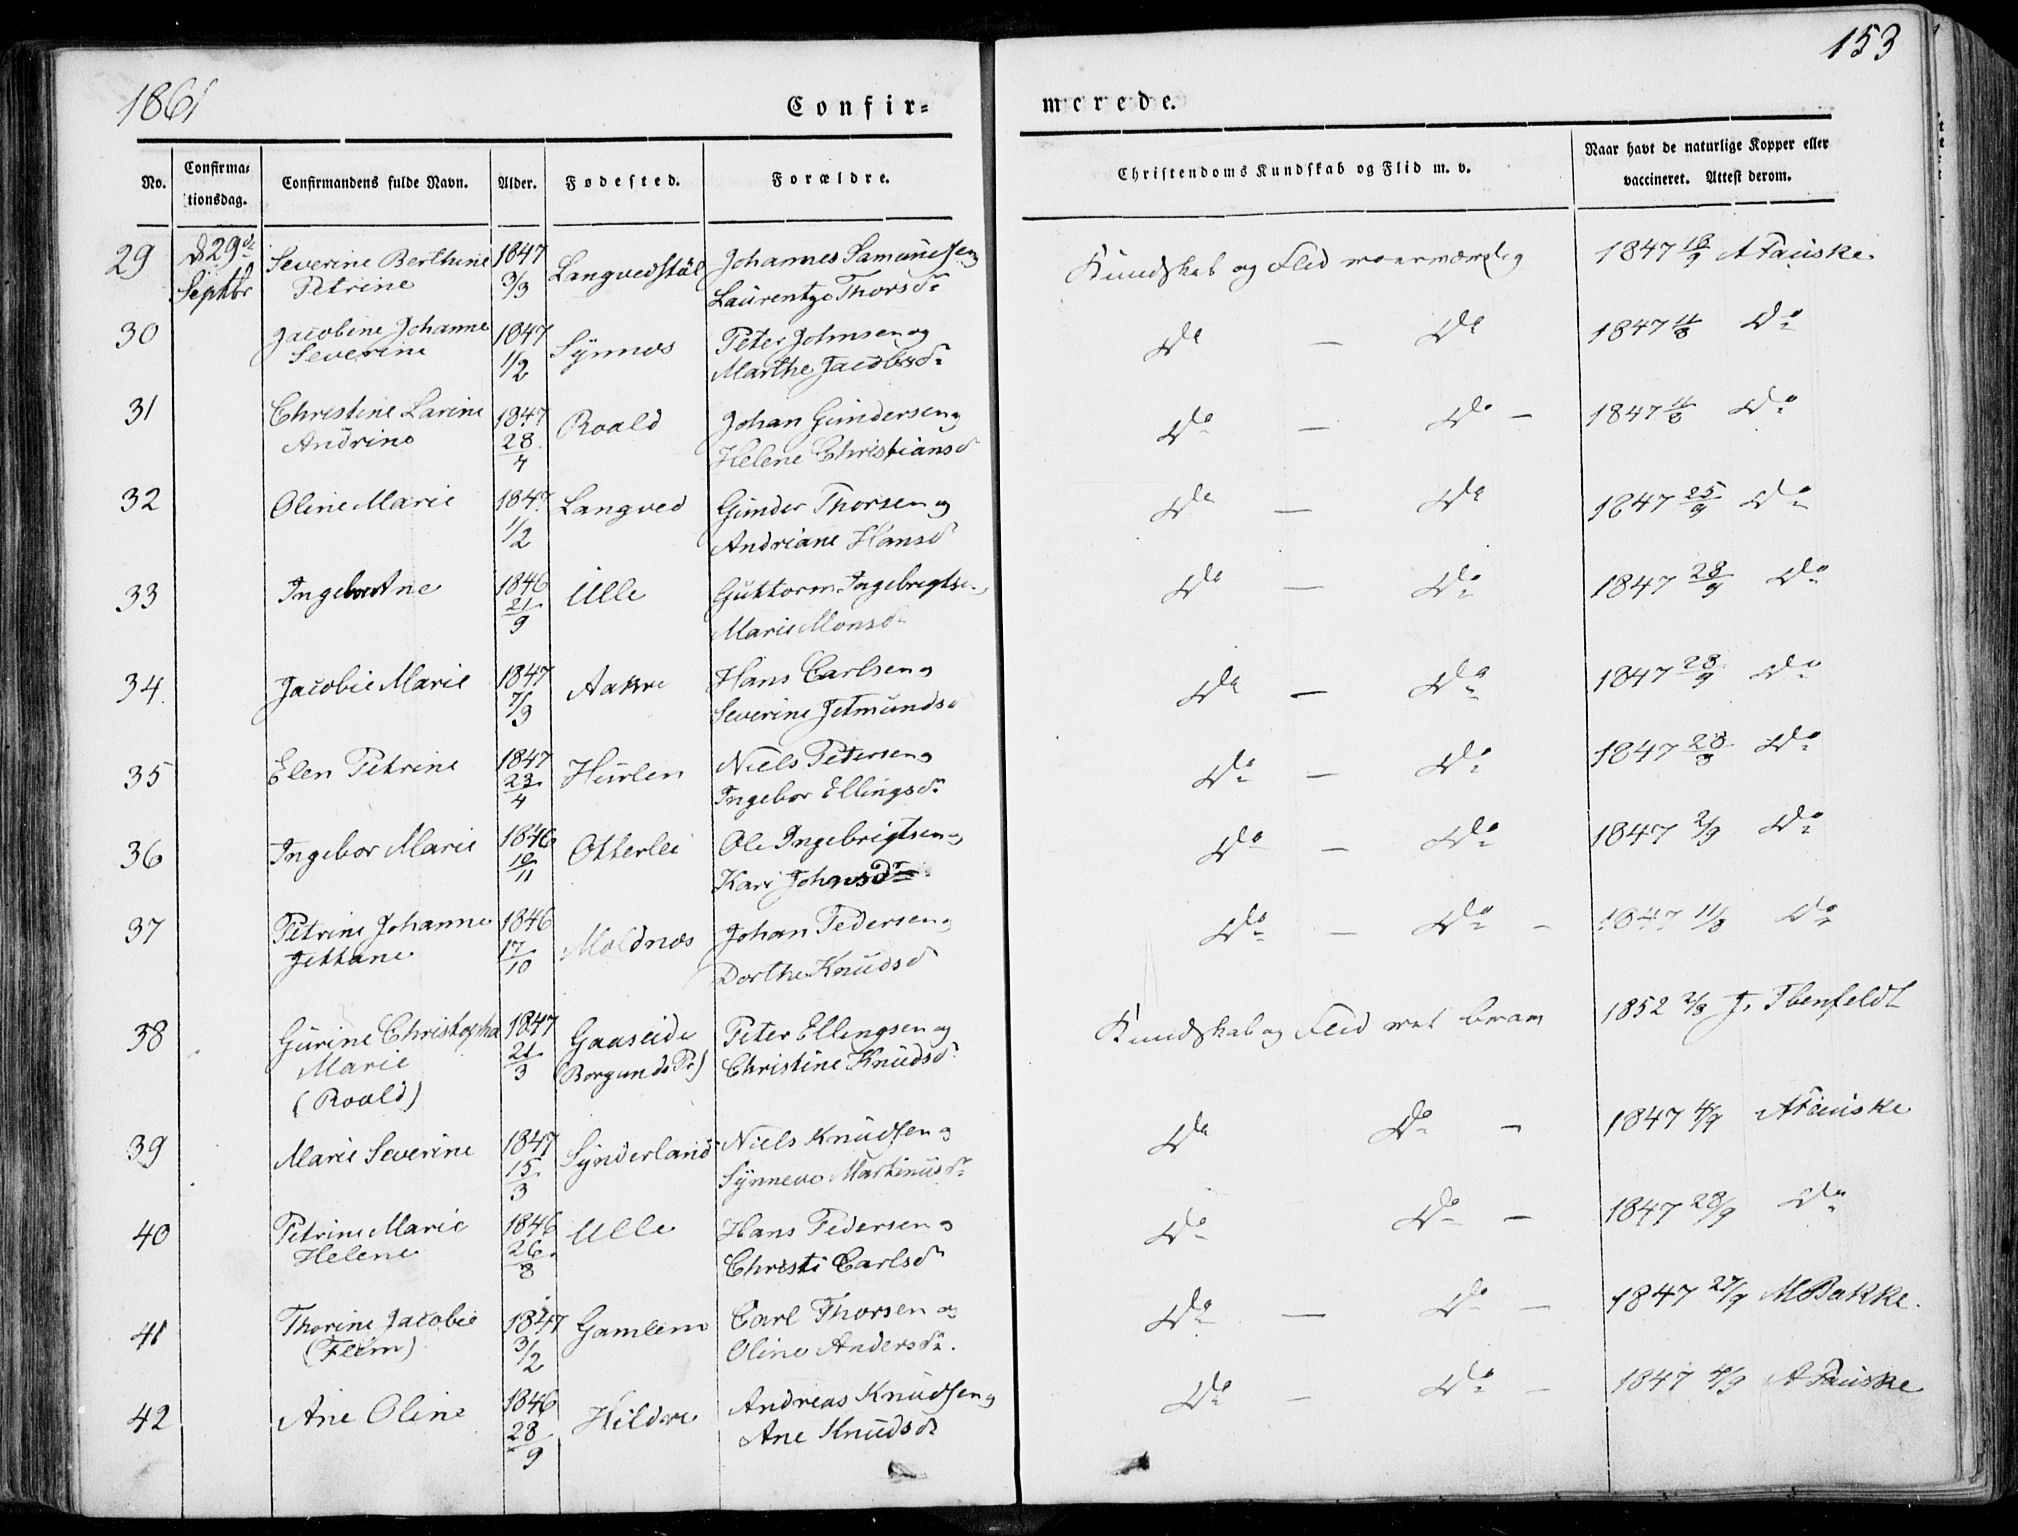 153
1861
Confir= merede.
No. Confirma=tionsdag. Confirmandens fulde Navn. Alder. Fødested. Forældre. Christendoms Kundskab og Flid m. v. Naar havt de naturlige Kopper eller vaccineret. Attest derom.
29 d 29de Severine Berthine 1847 Langvedstøl Johannes Samuelsen og Kundskab og Flid 1847 18/9 A Fauske
Septbr Petrine 3/3 Laurentze Thorsdr
30 Jacobine Johanne 1847 Synnes Peter Johnsen og Do — Do 1847 11/8 Do
Severine 1/2 Marthe Jacobsdr
31 Christine Larine 1847 Roald Johan Gundersen og Do — Do — 1847 11/8 Do
Andrine 28/4 Helene Christiansd
32 Oline Marie 1847 Langved Gunder Thorsen og Do — Do 1847 25/9 Do
1/2 Andriane Hansd
33 Ingebor Ane 1846 Ulle Guttorm Ingebrigtsen Do — Do 1847 28/9 Do
21/9 Marie Monsdr
34. Jacobie Marie 1847 Aakre Hans Carlsen og Do — Do 1847 28/9 Do
7/3 Severine Jetmundsd
35 Elen Petrine 1847 Hurlen Niels Petersen og Do — Do 1847 28/8 Do
23/4 Ingebor Ellingsdr
36 Ingebor Marie 1846 Otterlei Ole Ingebrigtsen og Do — Do 1847 2/9 Do
10/11 Kari Johnsdr
37 Petrine Johanne 1846 Moldnes Johan Pedersen og Do — Do — 1847 11/8 Do
Jettane 17/10 Dorthe Knudsd
38 Gurine Christopha 1847 Gaaseide Peter Ellingsen og Kundskab og Flid 1852 2/8 J. Ibenfeldt
Marie 21/3 (Borgunds Pr) Christine Knudsd
(Roald)
39 Marie Severine 1847 Synderland Niels Knudsen og Do Do — 1847 4/9 A Fauske
15/3 Synneve Martinusdr
40 Petrine Marie 1846 Ulle Hans Pedersen og Do Do — 1847 28/9 Do
Helene 26/8 Christi Carlsdr
41 Thorine Jacobie 1847 Gamlem Carl Thorsen og Do — Do — 1847 27/9 M Bakke.
(Flem) 3/2 Oline Andersdr.
42 Ane Oline 1846 Hildre Andreas Knudsen og Do — Do — 1847 4/9 A Fauske
28/9 Ane Knudsdr